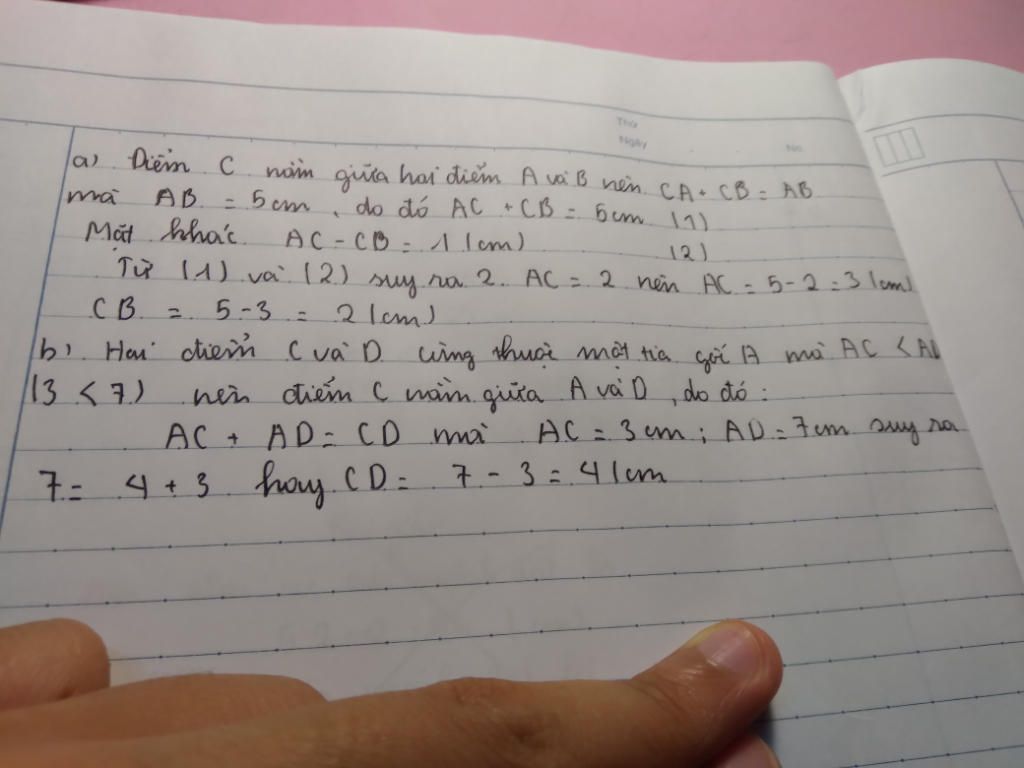 Thứ
Ngày No.
a) Điểm C nằm giữa hai điểm A và B nên CA + CB = AB
mà AB = 5cm, do đó AC + CB = 5cm (1)
Mặt khác AC - CB = 1 (cm) (2)
Từ (1) và (2) suy ra 2. AC = 2 nên AC = 5 - 2 = 3 (cm)
CB = 5 - 3 = 2 (cm)
b) Hai điểm C và D cùng thuộc một tia gốc A mà AC <
(3 < 7) nên điểm C nằm giữa A và D, do đó:
AC + AD = CD mà AC = 3cm; AD = 7cm suy ra
7 = 4 + 3 hay CD = 7 - 3 = 4 (cm